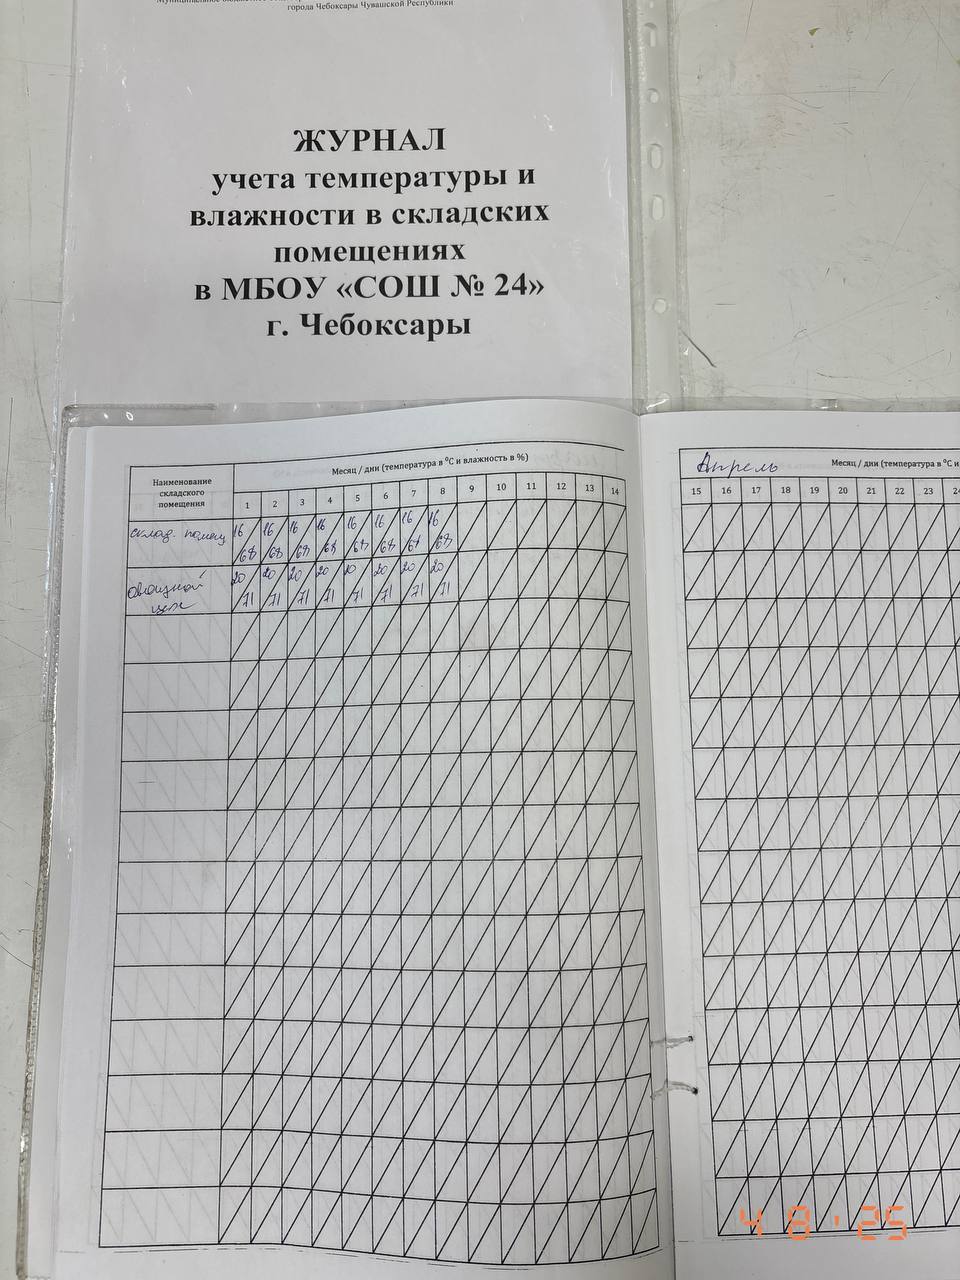 города Чебоксары Чувашской Республики
ЖУРНАЛ
учета температуры и
влажности в складских
помещениях
в МБОУ «СОШ № 24»
г. Чебоксары
Наименование складского помещения
Месяц / дни (температура в ⁰С и влажность в %)
1 2 3 4 5 6 7 8 9 10 11 12 13 14
склад. помещ 16/68 16/68 16/68 16/68 16/68 16/68 16/68 16/68
овощной цех 20/71 20/71 20/71 20/71 20/71 20/71 20/71 20/71
Апрель
Месяц / дни (температура в ⁰С и
15 16 17 18 19 20 21 22 23 24
4 8 '25